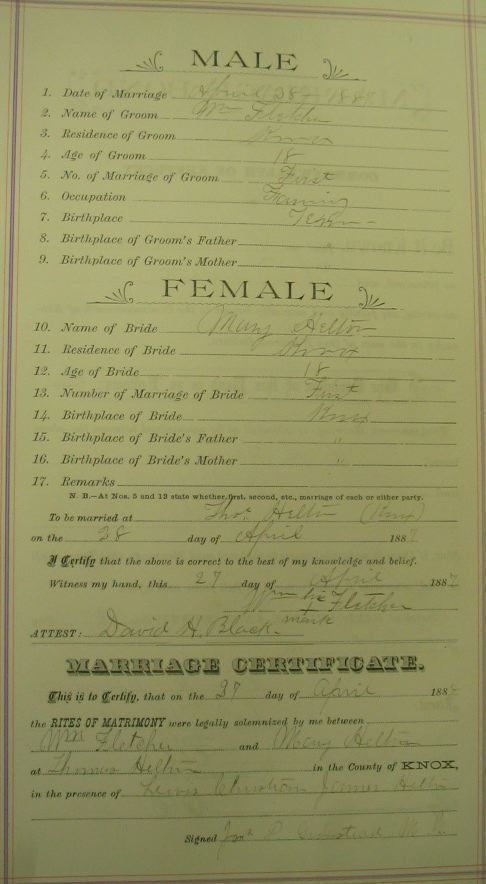 MALE
1. Date of Marriage April 28 188
2. Name of Groom Wm Fletcher
3. Residence of Groom Knox
4. Age of Groom 18
5. No. of Marriage of Groom First
6. Occupation Farming
7. Birthplace Tenn
8. Birthplace of Groom's Father "
9. Birthplace of Groom's Mother "
FEMALE
10. Name of Bride Mary Helton
11. Residence of Bride Knox
12. Age of Bride 18
13. Number of Marriage of Bride First
14. Birthplace of Bride Knox
15. Birthplace of Bride's Father "
16. Birthplace of Bride's Mother "
17. Remarks
N. B.—At Nos. 5 and 13 state whether first, second, etc., marriage of each or either party.
To be married at Thos Helton (Knox)
on the 28 day of April 188
I Certify that the above is correct to the best of my knowledge and belief.
Witness my hand, this 27 day of April 1887
Wm his Fletcher
mark
ATTEST: David H. Black
MARRIAGE CERTIFICATE.
This is to Certify, that on the 27 day of April 188
the RITES OF MATRIMONY were legally solemnized by me between
Wm Fletcher and Mary Helton
at Thomas Helton in the County of KNOX,
in the presence of Lewis James Helton
Signed P